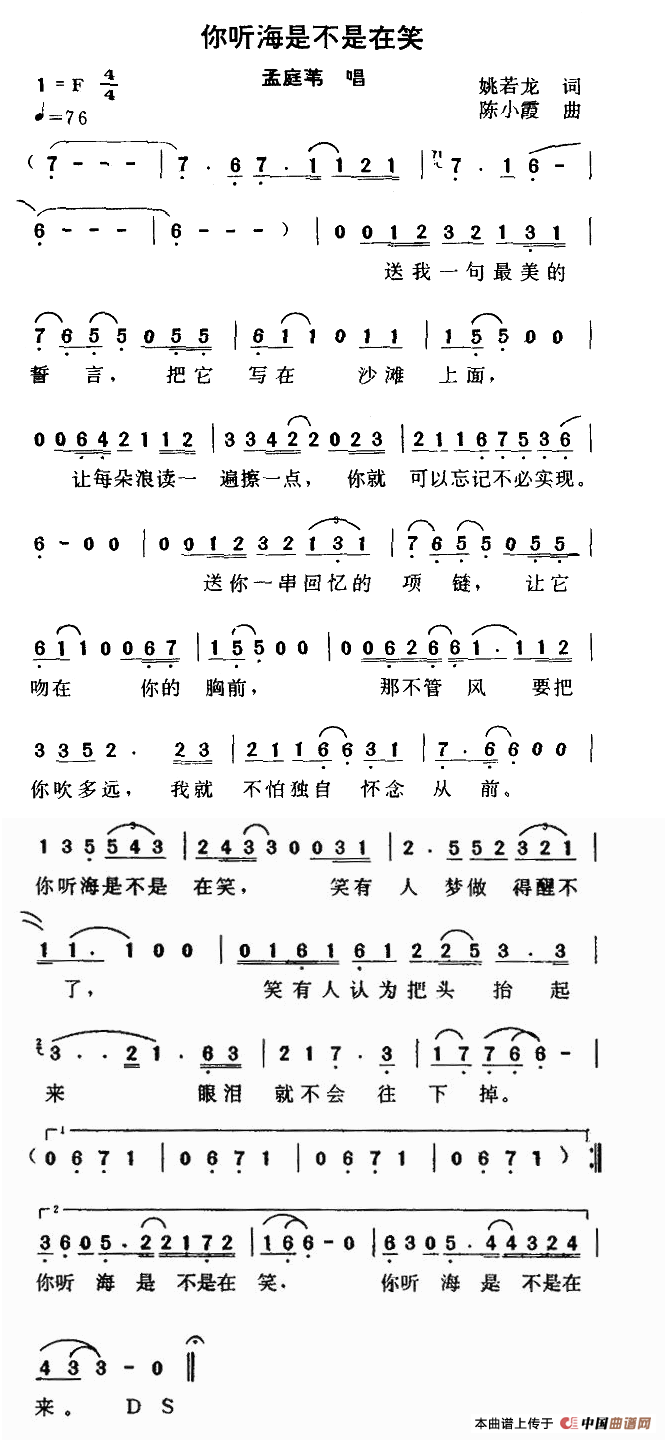 你听海是不是在笑
孟庭苇 唱
1=F 4/4
姚若龙 词
♩=76
陈小霞 曲
(7 - - - | 7 . 6 7 . 1 1 2 1 | 71 7 . 1 6 - |
6 - - - | 6 - - - ) | 0 0 1 2 3 2 1 3 1 |
送我一句最美的
7 6 5 5 0 5 5 | 6 1 1 0 1 1 | 1 5 5 0 0 |
誓言，把它写在 沙滩上面，
0 0 6 4 2 1 1 2 | 3 3 4 2 2 0 2 3 | 2 1 1 6 7 5 3 6 |
让每朵浪读一遍擦一点，你就可以忘记不必实现。
6 - 0 0 | 0 0 1 2 3 2 1 3 1 | 7 6 5 5 0 5 5 |
送你一串回忆的项链，让它
6 1 1 0 0 6 7 | 1 5 5 0 0 | 0 0 6 2 6 6 1 . 1 1 2 |
吻在 你的胸前， 那不管风 要把
3 3 5 2 . 2 3 | 2 1 1 6 6 3 1 | 7 . 6 6 0 0 |
你吹多远，我就不怕独自怀念从前。
1 3 5 5 4 3 | 2 4 3 3 0 0 3 1 | 2 . 5 5 2 3 2 1 |
你听海是不是在笑， 笑有人梦做得醒不
1 1 . 1 0 0 | 0 1 6 1 6 1 2 2 5 3 . 3 |
了， 笑有人认为把头抬起
2 3 . . 2 1 . 6 3 | 2 1 7 . 3 | 1 7 7 6 6 - |
来 眼泪就不会往下掉。
1
(0 6 7 1 | 0 6 7 1 | 0 6 7 1 | 0 6 7 1 ) :||
2
3 6 0 5 . 2 2 1 7 2 | 1 6 6 - 0 | 6 3 0 5 . 4 4 3 2 4 |
你听海是不是在笑， 你听海是不是在
4 3 3 - 0 ||
来。 D S
本曲谱上传于 中国曲谱网